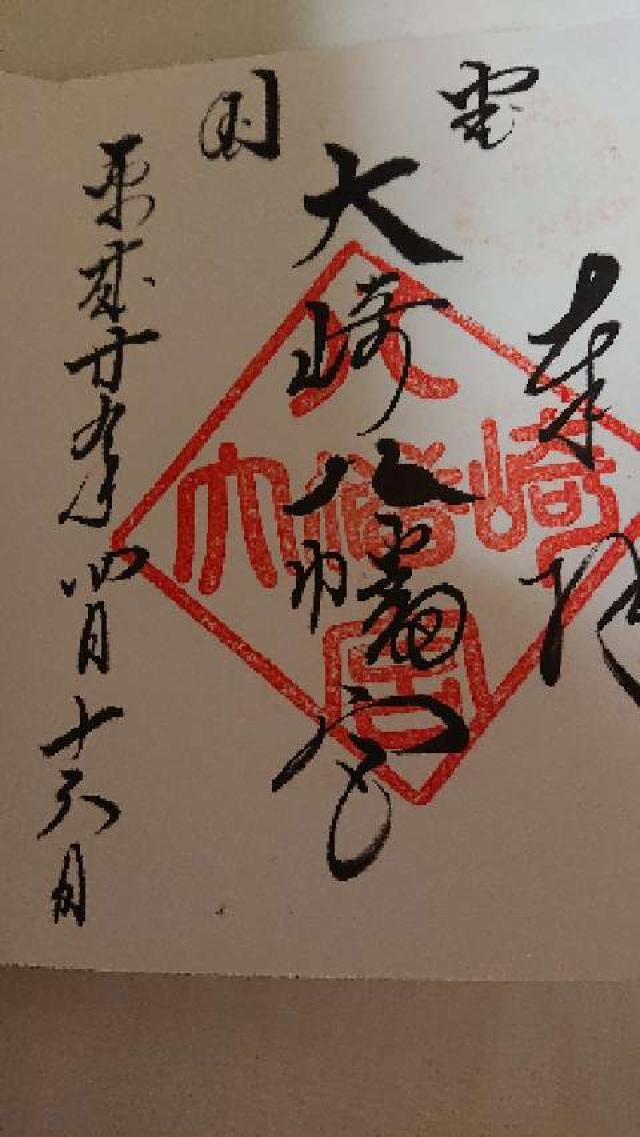 奉拝
国宝
大崎八幡宮
平成廿九年四月十六日
大崎八幡宮